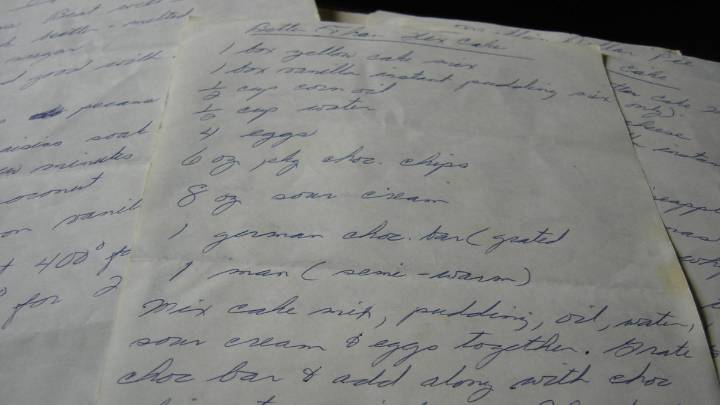 Better Than Sex Cake
1 box yellow cake mix
1 box vanilla instant pudding mix
1/2 cup corn oil
1/2 cup water
4 eggs
6 oz pkg choc. chips
8 oz sour cream
1 german choc. bar (grated
1 man (semi-warm)
Mix cake mix, pudding, oil, water,
sour cream & eggs together. Grate
choc bar & add along with choc
sugar
good with
pecans
raisins soak
minutes
coconut
vanil
400° fo
for 2
Cake
only)
cheese